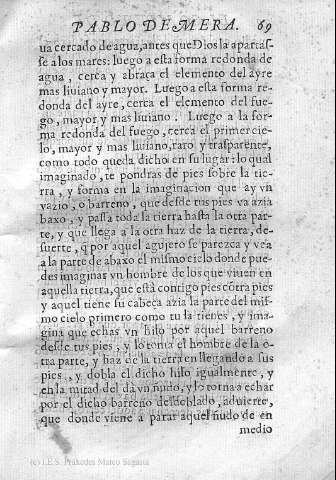 PABLO DE MERA. 69
ua cercado de agua, antes que Dios la apartas-
se a los mares: luego a esta forma redonda de
agua, cerca y abraça el elemento del ayre
mas liuiano y mayor. Luego a esta forma re-
donda del ayre, cerca el elemento del fue-
go, mayor y mas liuiano. Luego a la for-
ma redonda del fuego, cerca el primer cie-
lo, mayor y mas liuiano, raro y trasparente,
como todo queda dicho en su lugar: lo qual
imaginado, te pondras de pies sobre la tie-
rra, y forma en la imaginacion que ay vn
vazio, o barreno, que desde tus pies va azia
baxo, y passa toda la tierra hasta la otra par-
te, y que llega a la otra haz de la tierra, de-
suerte, q̃ por aquel agujero se parezca y vea
a la parte de abaxo el mismo cielo donde pue-
des imaginar vn hombre de los que viuen en
aquella tierra, que està contigo pies cõtra pies
y aquel tiene su cabeça azia la parte del mis-
mo cielo primero como tu la tienes, y ima-
gina que echas vn hilo por aquel barreno
desde tus pies, y lo toma el hombre de la o-
tra parte, y haz de la tierra en llegando a sus
pies, y dobla el dicho hilo igualmente, y
en la mitad del da vn ñudo, y lo torna a echar
por el dicho barreno desdoblado, aduierte,
que donde viene a parar aquel ñudo de en
medio
(c) I.E.S. Práxedes Mateo Sagasta